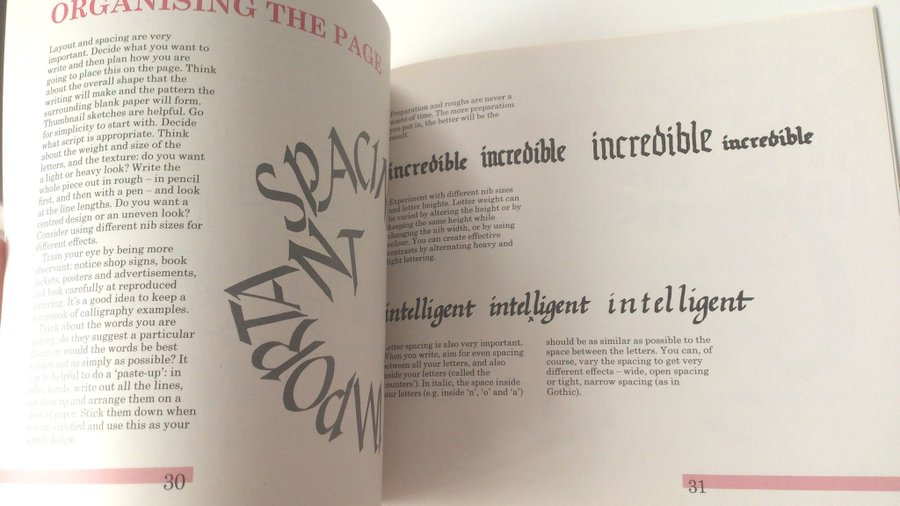 ORGANISING THE PAGE
Layout and spacing are very
important. Decide what you want to
write and then plan how you are
going to place this on the page. Think
about the overall shape that the
writing will make and the pattern the
surrounding blank paper will form.
Thumbnail sketches are helpful. Go
for simplicity to start with. Decide
what script is appropriate. Think
about the weight and size of the
letters, and the texture: do you want
a light or heavy look? Write the
whole piece out in rough – in pencil
first, and then with a pen – and look
at the line lengths. Do you want a
centred design or an uneven look?
Consider using different nib sizes for
different effects.
Train your eye by being more
observant: notice shop signs, book
jackets, posters and advertisements,
and look carefully at reproduced
lettering. It's a good idea to keep a
scrapbook of calligraphy examples.
Think about the words you are
do they suggest a particular
would the words be best
out as simply as possible? It
be helpful to do a 'paste-up': in
words, write out all the lines,
them up and arrange them on a
of paper. Stick them down when
satisfied and use this as your
design.
SPACIN
MPORTANT
30
Preparation and roughs are never a
waste of time. The more preparation
you put in, the better will be the
result.
incredible incredible incredible incredible
Experiment with different nib sizes
and letter heights. Letter weight can
be varied by altering the height or by
keeping the same height while
changing the nib width, or by using
colour. You can create effective
contrasts by alternating heavy and
light lettering.
intelligent intelligent intelligent
Letter spacing is also very important.
When you write, aim for even spacing
between all your letters, and also
inside your letters (called the
counters'). In italic, the space inside
your letters (e.g. inside 'n', 'o' and 'a')
should be as similar as possible to the
space between the letters. You can, of
course, vary the spacing to get very
different effects – wide, open spacing
or tight, narrow spacing (as in
Gothic).
31